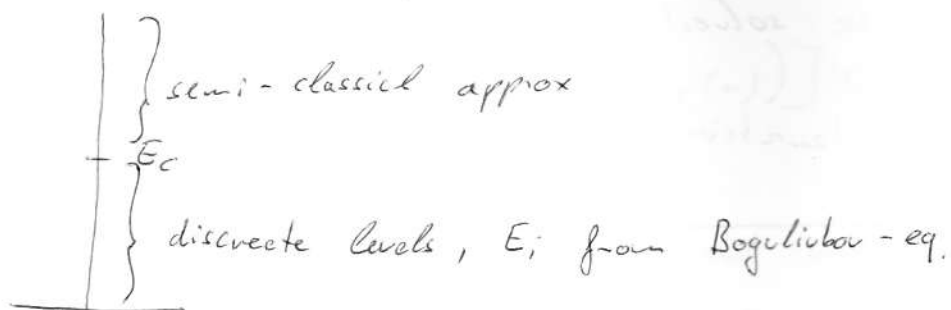 semi-classicl approx
Ec
discreete levels, Ei from Bogoliubov-eq.